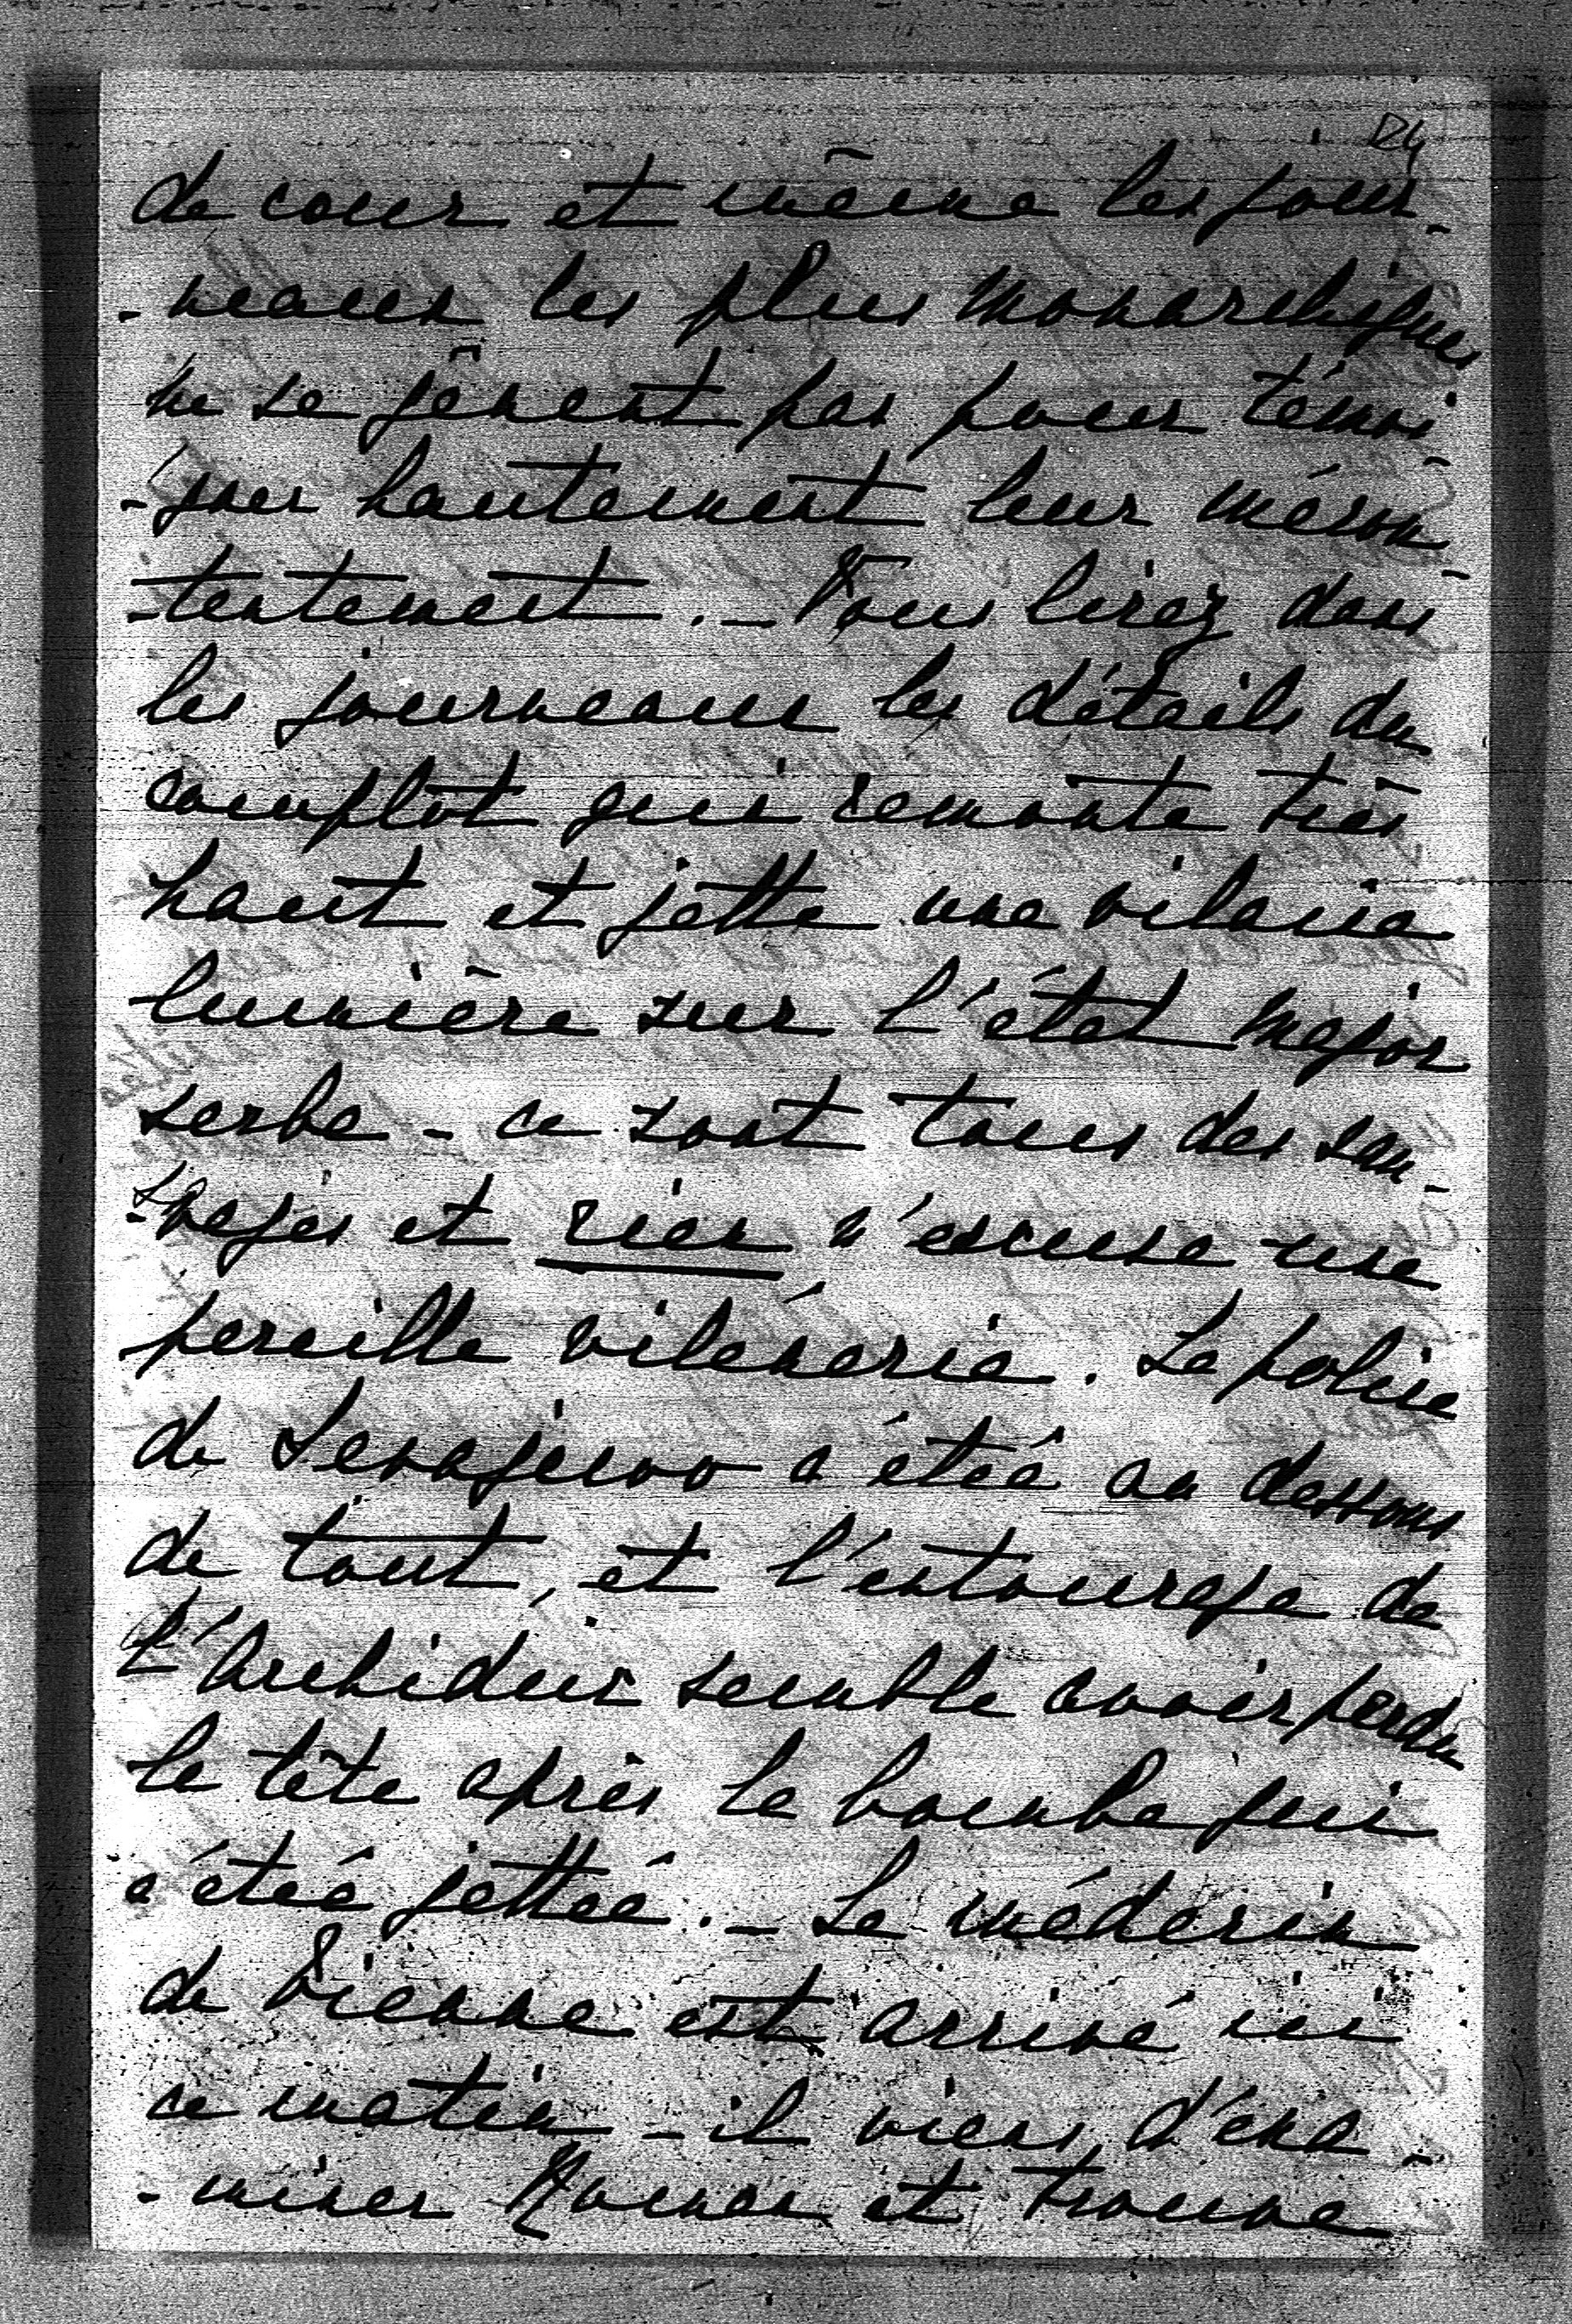 24
de cour et même les jour-
-neaux les plus monarchiques
ne se gênent pas pour témoi-
-gner hautement leur mécon-
-tentement. - Vous lirez dans
les journeaux les détails du
complôt qui remonte très
haut et jette une vilaine
lumière sur l'état major
serbe - ce sont tous des sau-
-vages et rien n'excuse une
pareille vilénerie. La police
de Serajewo a étée au dessous
de tout, et l'entourage de
l'Archiduc semble avoir perdu
la tête après la bombe qui
a étée jettée. - Le médecin
de Vienne est arrivé ici
ce matin - il viens d'exa-
-miner Maman et trouve